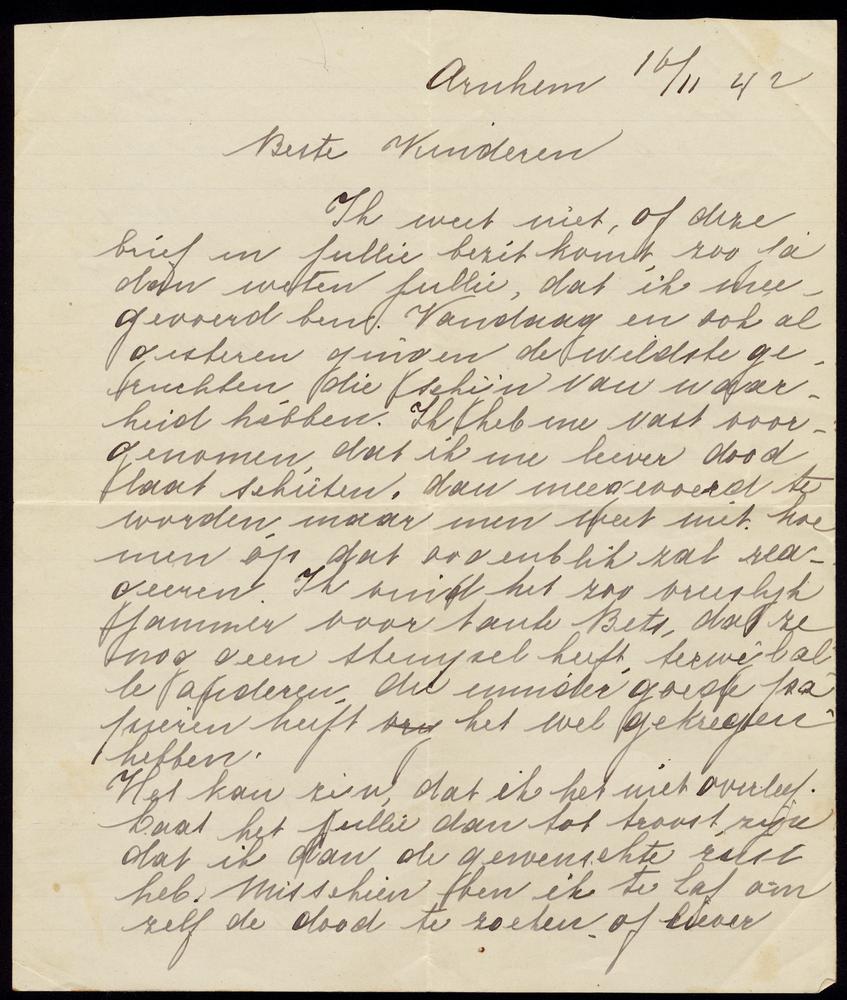 Arnhem 16/11 42
Beste Kinderen
Ik weet niet, of deze
brief in jullie bezit komt, zoo ja
dan weten jullie, dat ik mee-
gevoerd ben. Vandaag en ook al
gisteren gingen de wildste ge-
ruchten die schijn van waar-
heid hebben. Ik heb me vast voor-
genomen, dat ik me liever dood
laat schieten, dan meegevoerd te
worden, maar men weet niet hoe
men op dat oogenblik zal rea-
geeren. Ik vind het zoo vreeslijk
jammer voor tante Bets, dat ze
nog geen stempel heeft, terwijl al
le anderen, die minder goede pa
pieren heeft het wel gekregen
hebben.
Het kan zijn, dat ik het niet overleef.
Laat het jullie dan tot troost zijn
dat ik dan de gewenschte rust
heb. Misschien ben ik te laf om
zelf de dood te zoeken of liever